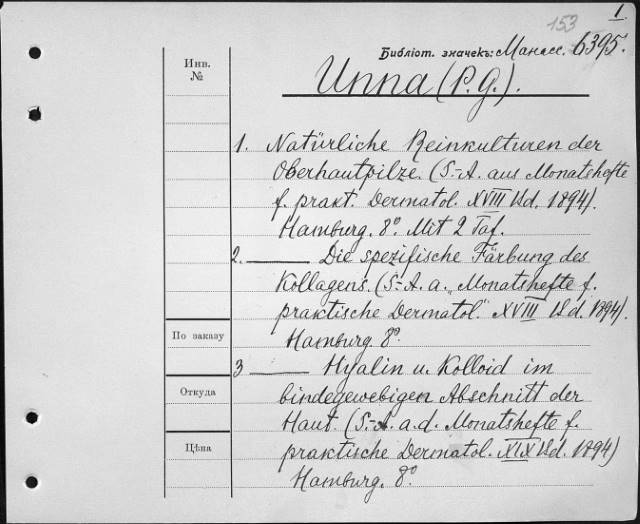 1.
153
Инв.
№
Библіот. значекъ: Манасс. 6395.
Unna (P. G.).
1. Natürliche Reinkulturen der
Oberhautpilze. (S.-A. aus Monatshefte
f. prakt. Dermatol. XVIII Bd. 1894).
Hamburg. 8º. Mit 2 Taf.
2. ——— Die spezifische Färbung des
Kollagens. (S.-A. a. „Monatshefte f.
praktische Dermatol." XVIII Bd. 1894).
Hamburg 8º
По заказу
3 ——— Hyalin u. Kolloid im
bindegewebigen Abschnitt der
Откуда
Haut. (S.-A. a. d. Monatshefte f.
praktische Dermatol. XIX Bd. 1894)
Цѣна
Hamburg. 8º.